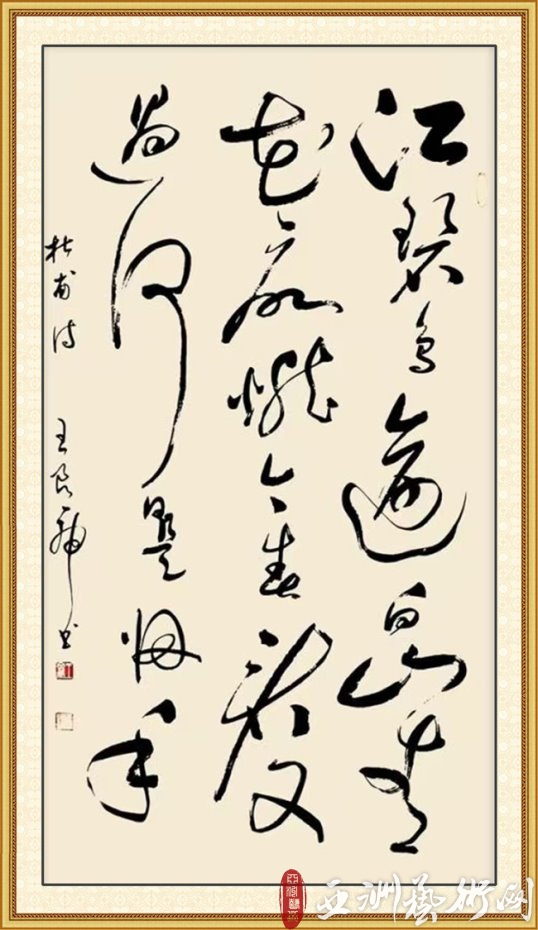 江碧鸟逾白山青
花欲燃今春看又
過何日是归年
杜甫诗 王良 书
亚洲藝術网